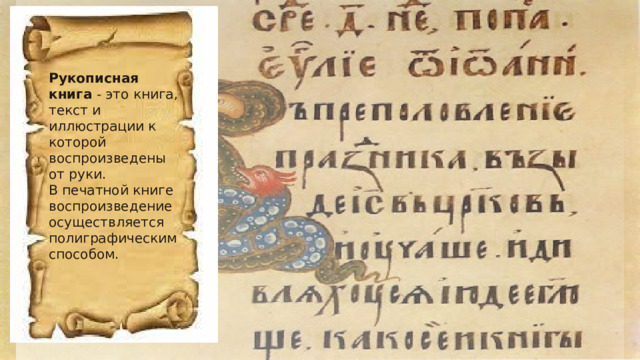 Рукописная
книга - это книга,
текст и
иллюстрации к
которой
воспроизведены
от руки.
В печатной книге
воспроизведение
осуществляется
полиграфическим
способом.
СРЕ · Д҃ · НЕ҃, ПОПА ·
ЕѴ҃ЛІЕ ѾІѠА́НН.
ЪПРЕПОЛОВЛЕНІЕ
ПРАZНИКА, ВЪZЫ
ДЕІС҃ВЪЦРК҃ОВЬ,
ШЕ. КАКОСЕ́ИКНІ́ГЫ